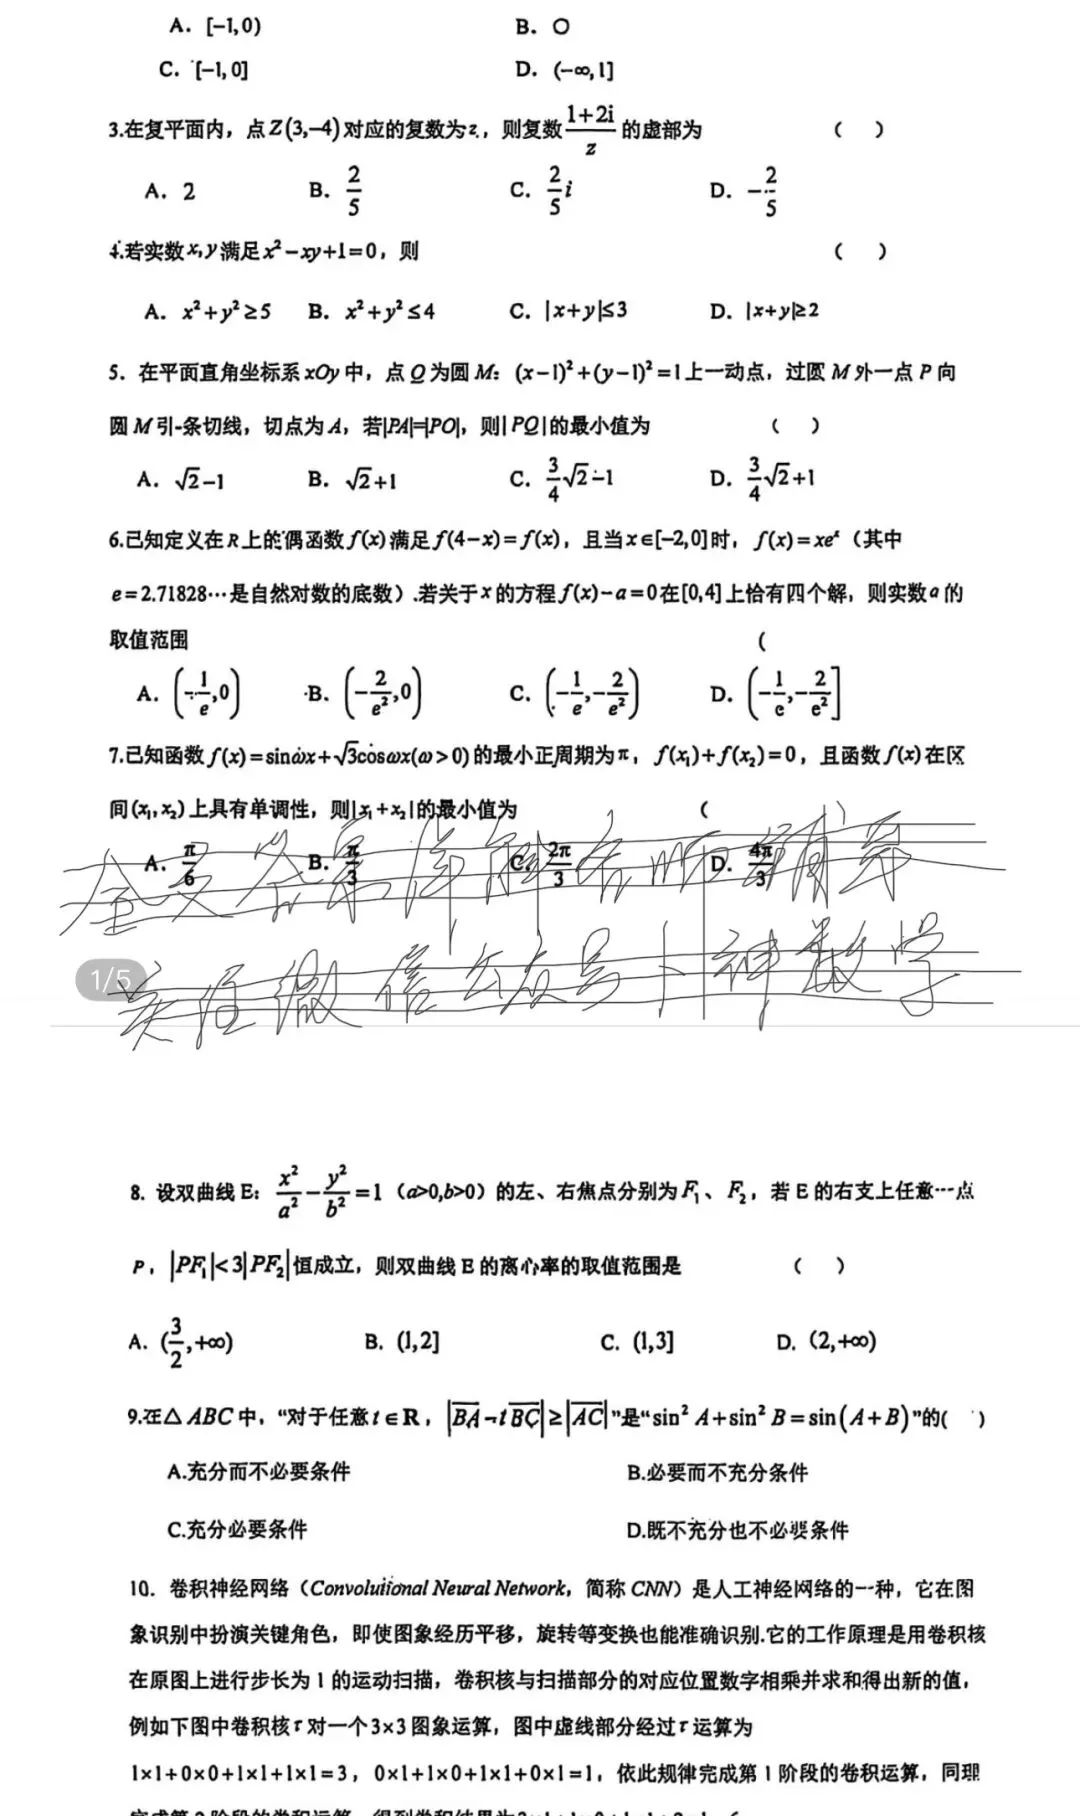 A. [-1,0)
B. O
C. [-1,0]
D. (-∞,1]
3.在复平面内，点Z(3,-4)对应的复数为z，则复数(1+2i)/z的虚部为 ( )
A. 2 B. 2/5 C. 2/5 i D. -2/5
4.若实数x,y满足x²-xy+1=0，则 ( )
A. x²+y²≥5 B. x²+y²≤4 C. |x+y|≤3 D. |x+y|≥2
5. 在平面直角坐标系xOy中，点Q为圆M：(x-1)²+(y-1)²=1上一动点，过圆M外一点P向
圆M引-条切线，切点为A，若|PA|=|PO|，则|PQ|的最小值为 ( )
A. √2-1 B. √2+1 C. 3/4√2-1 D. 3/4√2+1
6.已知定义在R上的偶函数f(x)满足f(4-x)=f(x)，且当x∈[-2,0]时，f(x)=xeˣ（其中
e=2.71828…是自然对数的底数）.若关于x的方程f(x)-a=0在[0,4]上恰有四个解，则实数a的
取值范围 (
A. (-1/e,0) B. (-2/e²,0) C. (-1/e,-2/e²) D. (-1/e,-2/e²]
7.已知函数f(x)=sinωx+√3cosωx(ω>0)的最小正周期为π，f(x₁)+f(x₂)=0，且函数f(x)在区
间(x₁,x₂)上具有单调性，则|x₁+x₂|的最小值为 (
A. π/6 B. π/3 C. 2π/3 D. 4π/3
全又答案详解
关注微信公众号 神数学
1/5
8. 设双曲线E：x²/a²-y²/b²=1（a>0,b>0）的左、右焦点分别为F₁、F₂，若E的右支上任意一点
P，|PF₁|<3|PF₂|恒成立，则双曲线E的离心率的取值范围是 ( )
A. (3/2,+∞) B. (1,2] C. (1,3] D. (2,+∞)
9.在△ABC中，“对于任意t∈R，|BA-tBC|≥|AC|”是“sin²A+sin²B=sin(A+B)”的( )
A.充分而不必要条件 B.必要而不充分条件
C.充分必要条件 D.既不充分也不必要条件
10. 卷积神经网络（Convolutional Neural Network，简称CNN）是人工神经网络的一种，它在图
象识别中扮演关键角色，即使图象经历平移，旋转等变换也能准确识别.它的工作原理是用卷积核
在原图上进行步长为1的运动扫描，卷积核与扫描部分的对应位置数字相乘并求和得出新的值，
例如下图中卷积核τ对一个3×3图象运算，图中虚线部分经过τ运算为
1×1+0×0+1×1+1×1=3，0×1+1×0+1×1+0×1=1，依此规律完成第1阶段的卷积运算，同理